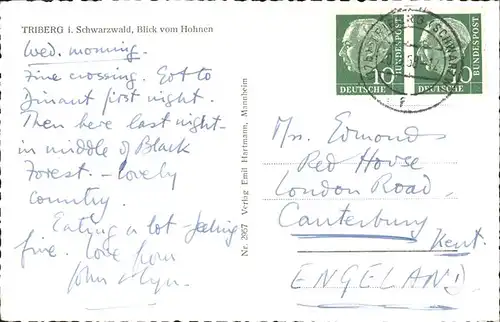 TRIBERG i. Schwarzwald, Blick vom Hohnen
Wed. morning.
Fine crossing. Got to
Dinant first night.
Then here last night -
in middle of Black
Forest. - Lovely
country.
Eating a lot - feeling
fine. Love from
John & Lyn.
Nr. 2957 Verlag Emil Hartmann, Mannheim
10
DEUTSCHE
BUNDESPOST
10
DEUTSCHE
BUNDESPOST
Mrs. Edmonds
Red House
London Road,
Canterbury
Kent.
ENGELAND.